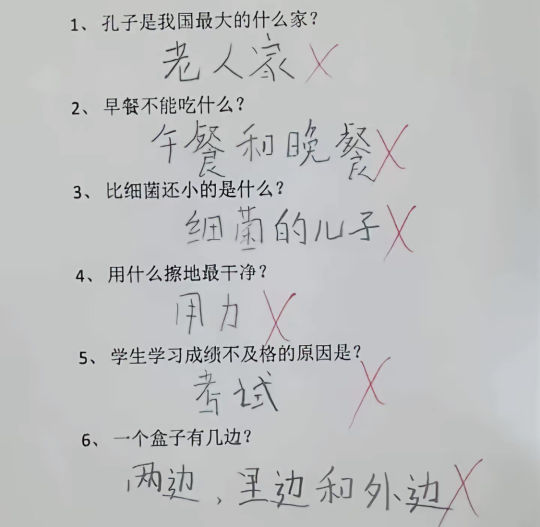 1、孔子是我国最大的什么家？
老人家
2、早餐不能吃什么？
午餐和晚餐
3、比细菌还小的是什么？
细菌的儿子
4、用什么擦地最干净？
用力
5、学生学习成绩不及格的原因是？
考试
6、一个盒子有几边？
两边，里边和外边